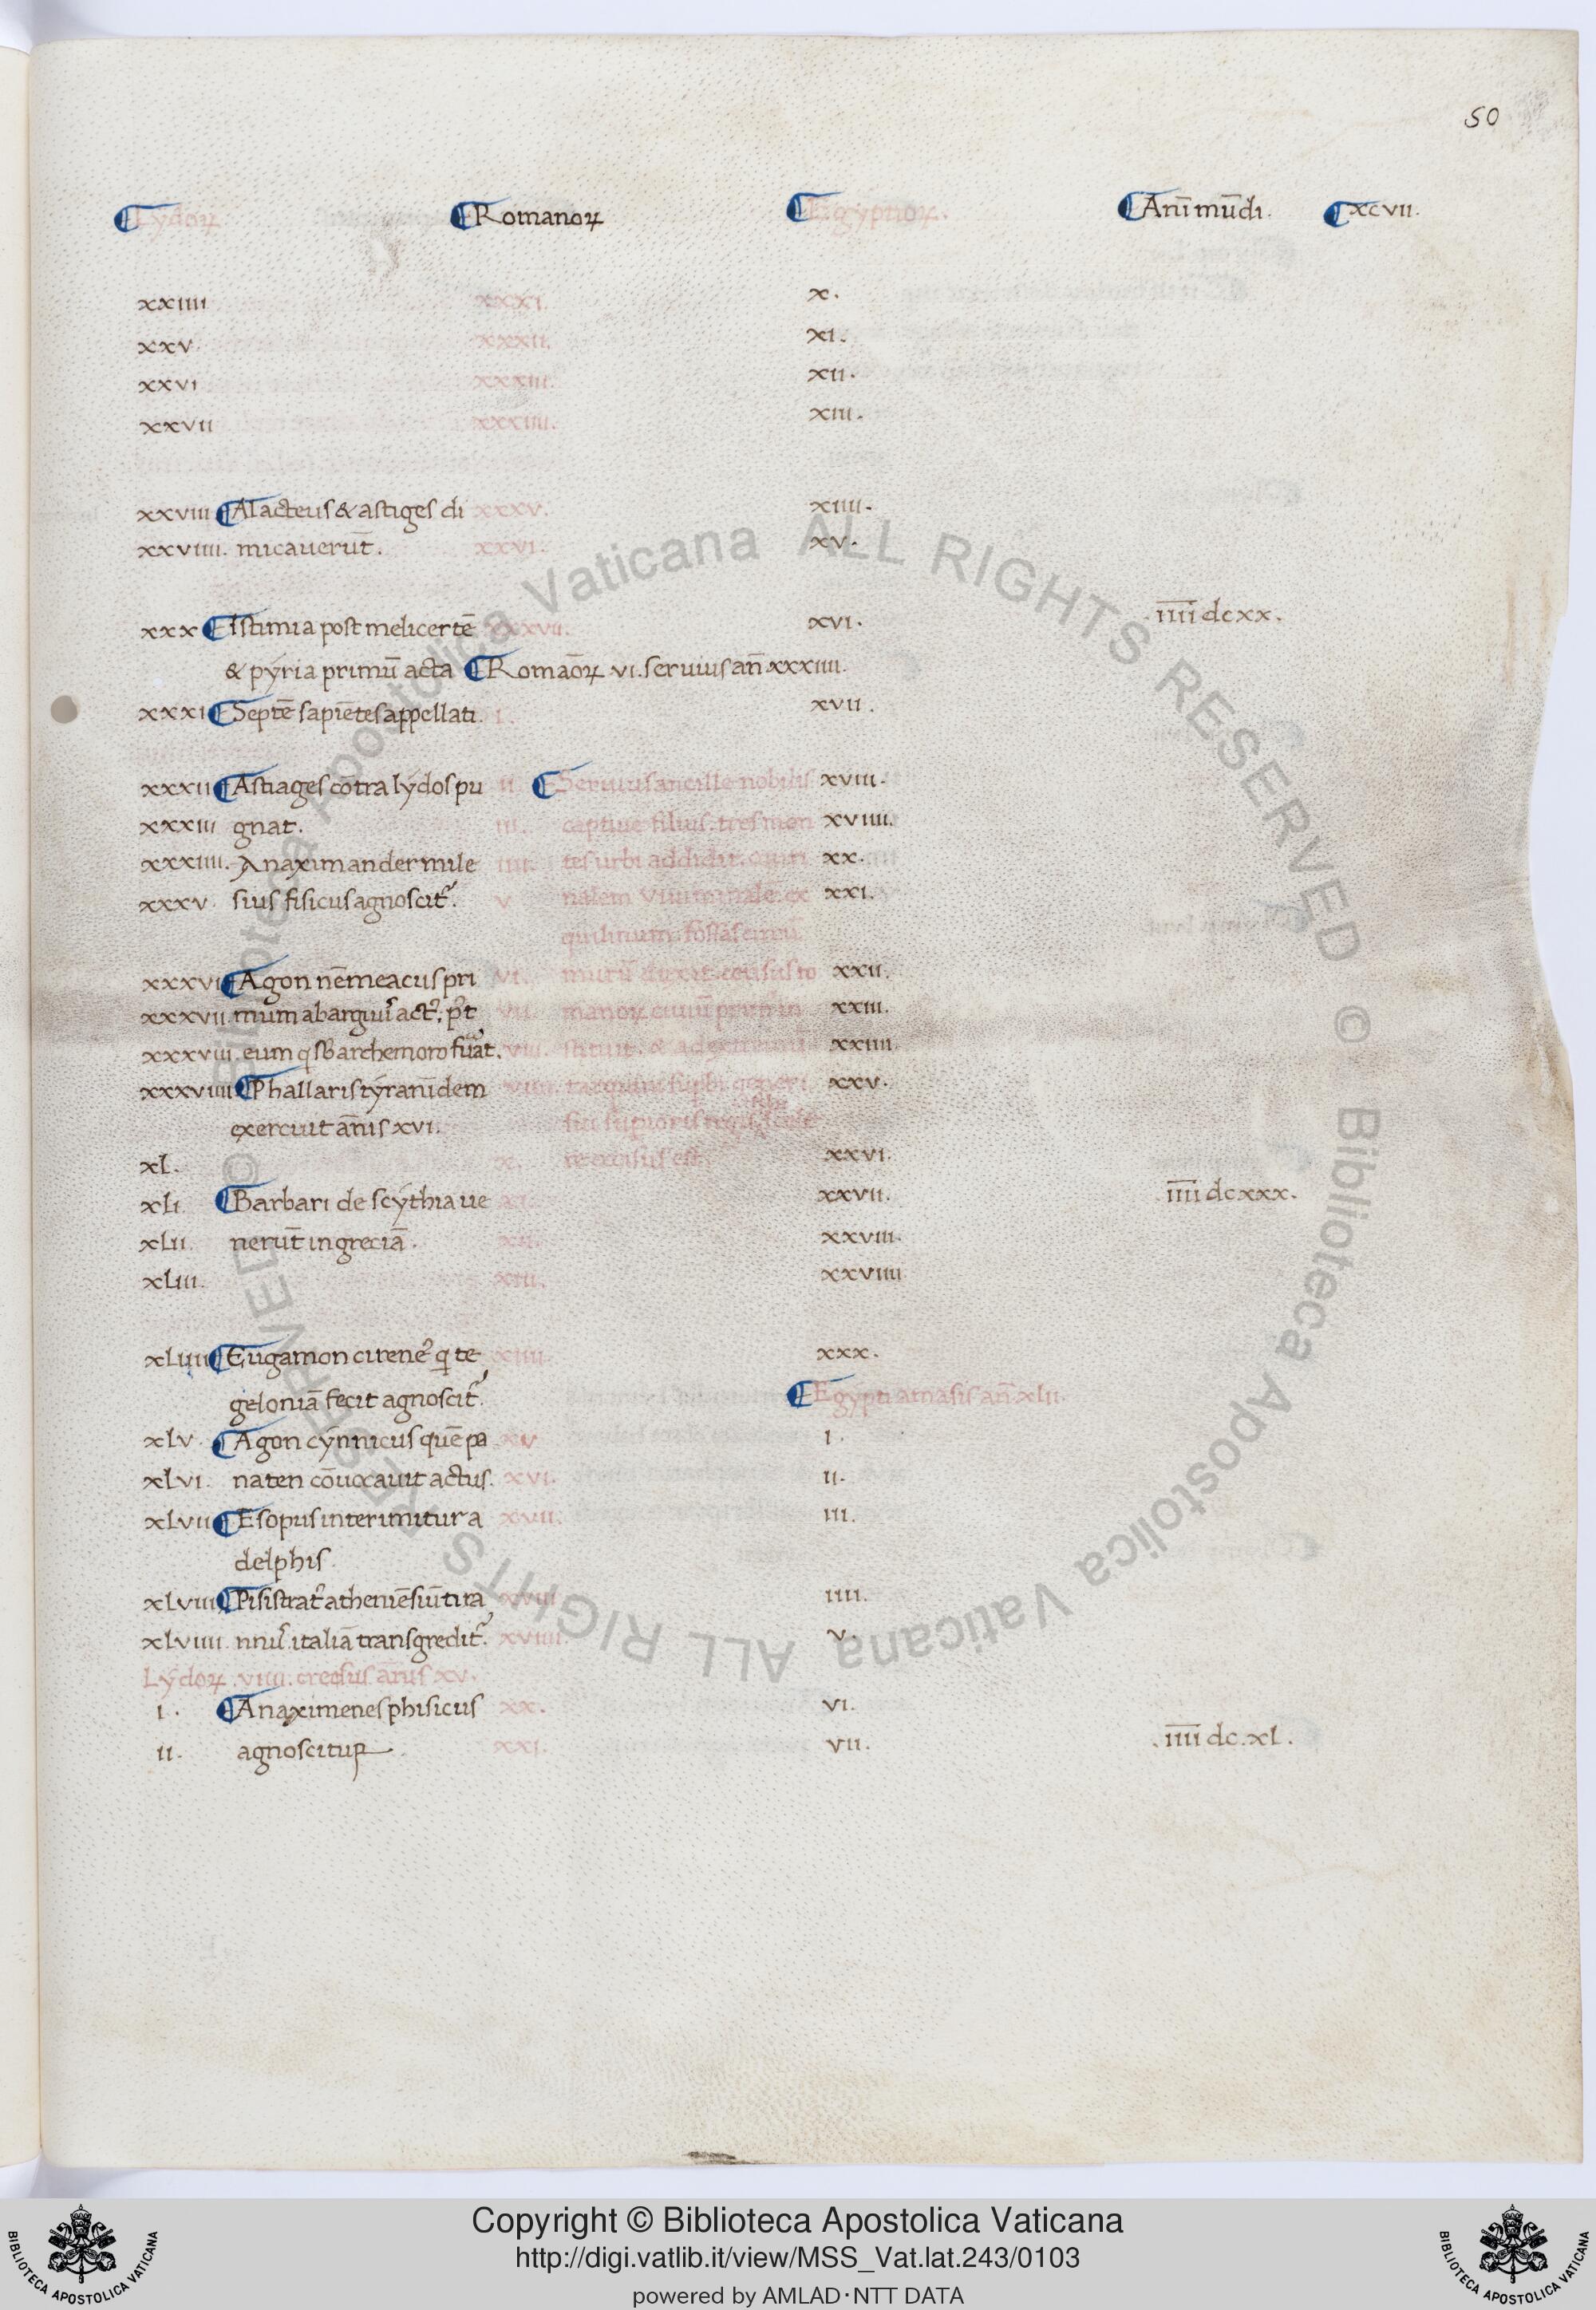 50
Lydoꝝ Romanoꝝ Egyptioꝝ. Anī mūdi. xcvii.
xxiiii xxxi. x.
xxv xxxii. xi.
xxvi xxxiii. xii.
xxvii xxxiiii. xiii.
xxviii Alacteus & astiges di xxxv. xiiii.
xxviiii. micauerūt. xxvi. xv.
xxx Istimia post melicertē xxxvii. xvi. iiii̅ dcxx.
& pyria primū acta Romāoꝝ vi. seruius an̄ xxxiiii.
xxxi Septē sapiētes appellati. i. xvii.
xxxii Astiages cōtra lydos pu ii Seruius ancille nobilis xviii.
xxxiii gnat. iii. captiue filius. tres mon xviiii.
xxxiiii. Anaximander mile iiii. tes urbi addidit. quiri xx.
xxxv sius fisicus agnoscit᷑. v nalem viuminale. ex xxi.
quilinum. fossas circū
xxxvi Agon nēmeacus pri vi. murū duxit. census ro xxii.
xxxvii mum ab arguiꝰ act᷑. p᷒t vii. manoꝝ ciuiū primū in xxiii.
xxxviii. eum q̄ sb̄ archemoro fuāt. viii. stituit. & ad extremū xxiiii.
xxxviiii Phallaris tyranidem viiii. tarquini supbi generi xxv.
exercuit an̄is xvi. sui supioris regis
xl. x. re occisus est. xxvi.
xli Barbari de scythia ue xi. xxvii. iiii̅ dcxxx.
xlii. nerūt in greciā. xii. xxviii.
xliii. xiii. xxviiii
xliiii Eugamon cirene᷒ q̄ te xiiii xxx.
geloniā fecit agnoscit᷑. Egypti amasis an̄ xlii.
xlv. Agon cynnicus quē pa xv i.
xlvi. naten cōuocauit actus. xvi. ii.
xlvii Esopus interimitur a xvii. iii.
delphis.
xlviii Pisistrat᷒ atheniēsiū tira xviii iiii.
xlviiii. nnus. italiā transgredit᷑. xviiii. v.
Lydoꝝ. viiii. cresus an̄is xv.
i. Anaximenes phisicus xx. vi.
ii. agnoscitur xxi. vii. .iiii̅ dc.xl.
© Biblioteca Apostolica Vaticana ALL RIGHTS RESERVED © Biblioteca Apostolica Vaticana ALL RIGHTS RESERVED
Copyright © Biblioteca Apostolica Vaticana
http://digi.vatlib.it/view/MSS_Vat.lat.243/0103
powered by AMLAD·NTT DATA
BIBLIOTECA APOSTOLICA VATICANA
BIBLIOTECA APOSTOLICA VATICANA